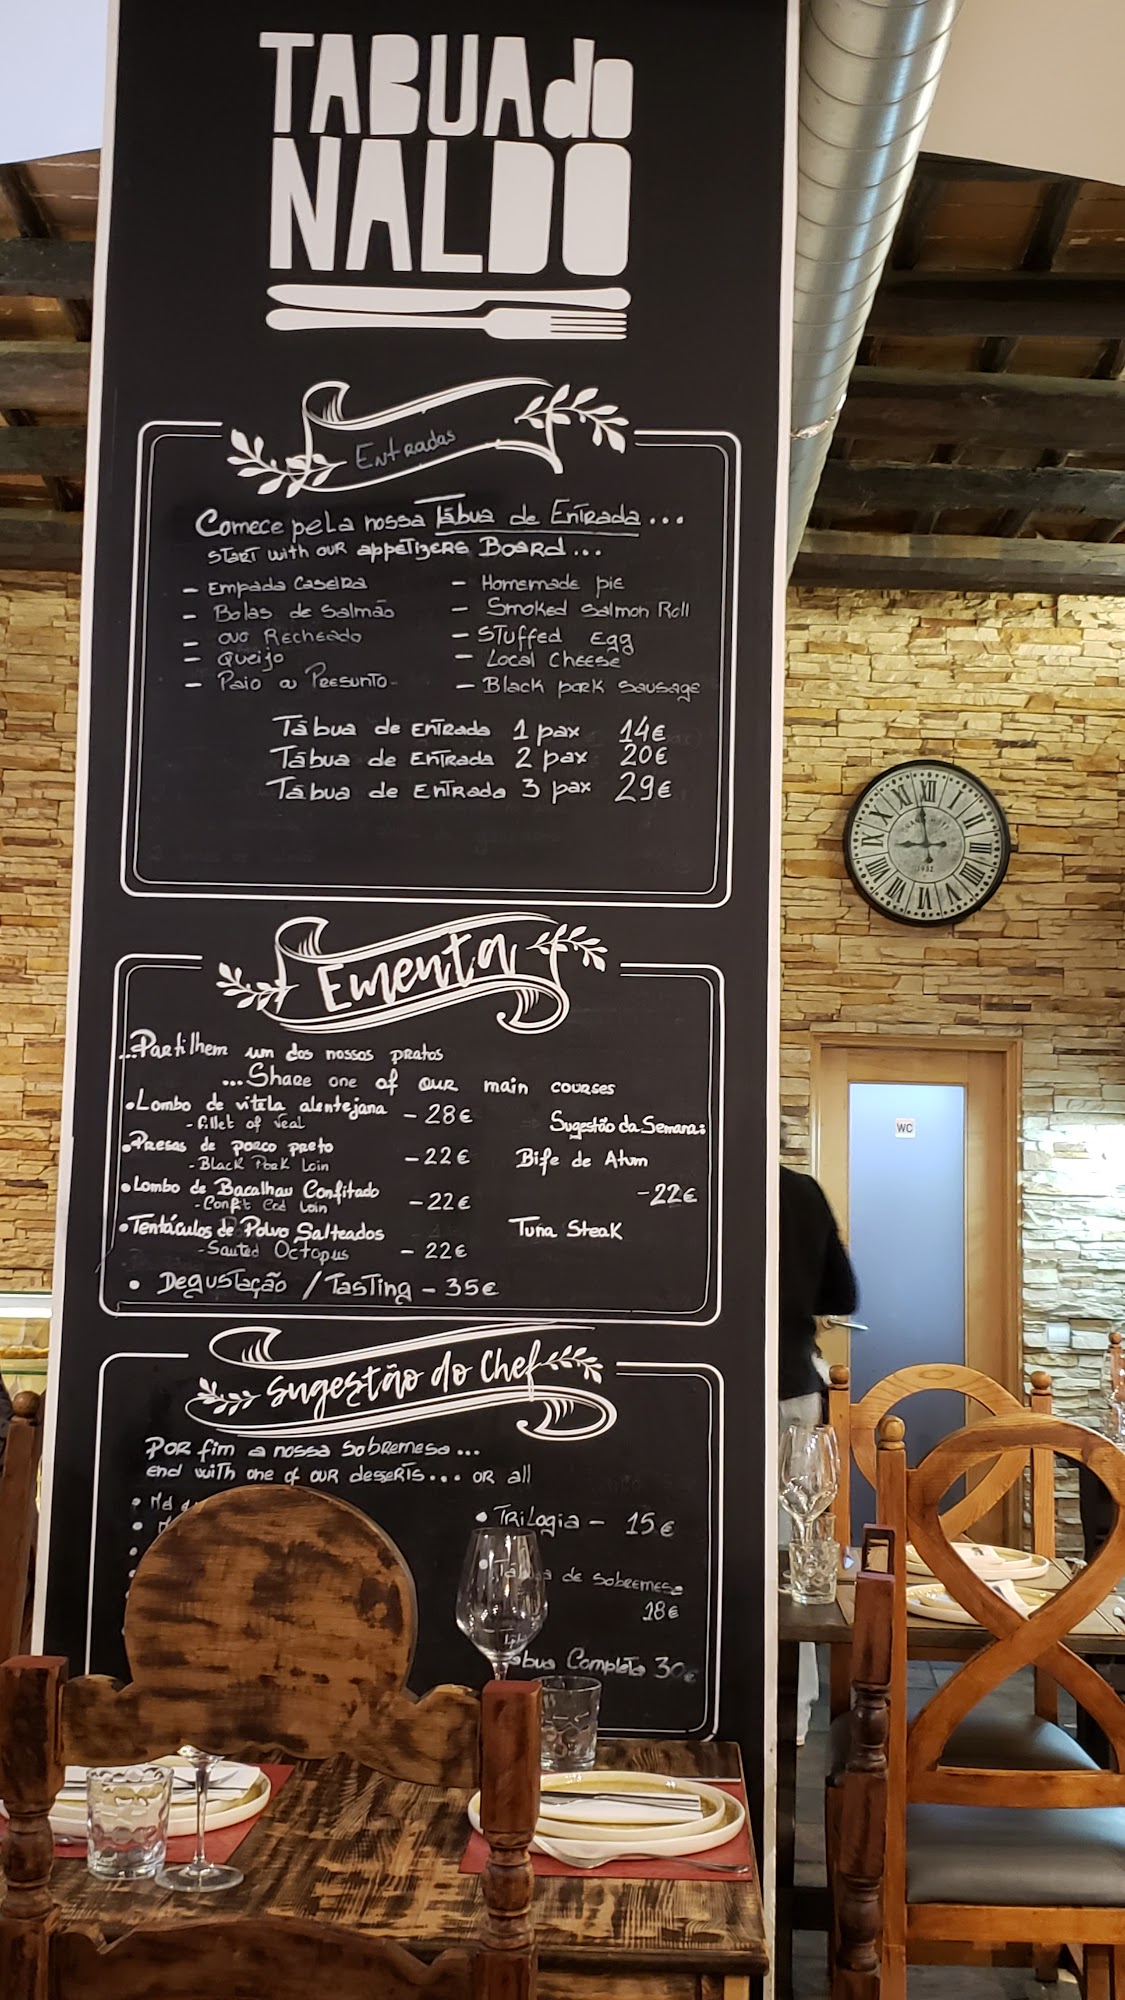 TABUA do
NALDO
Entradas
Comece pela nossa Tábua de Entrada...
Start with our appetizers Board...
- Empada Caseira
- Bolas de Salmão
- ovo Recheado
- Queijo
- Paio ou Presunto-
- Homemade pie
- Smoked Salmon Roll
- Stuffed Egg
- Local Cheese
- Black pork sausage
Tábua de Entrada 1 pax 14€
Tábua de Entrada 2 pax 20€
Tábua de Entrada 3 pax 29€
Ementa
...Partilhem um dos nossos pratos
...Share one of our main courses
•Lombo de vitela alentejana - 28€
- Fillet of Veal
•Presas de porco preto - 22€
- Black Pork Loin
•Lombo de Bacalhau Confitado - 22€
- Confit Cod Loin
•Tentáculos de Polvo Salteados - 22€
- Sauted Octopus
• Degustação / Tasting - 35€
Sugestão da Semana:
Bife de Atum
- 22€
Tuna Steak
Sugestão do Chef
Por fim a nossa sobremesa...
end with one of our desserts... or all
• Trilogia - 15€
de sobremesa
18€
Completa 30€
XII I II III IIII V VI VII VIII IX X XI
1932
WC